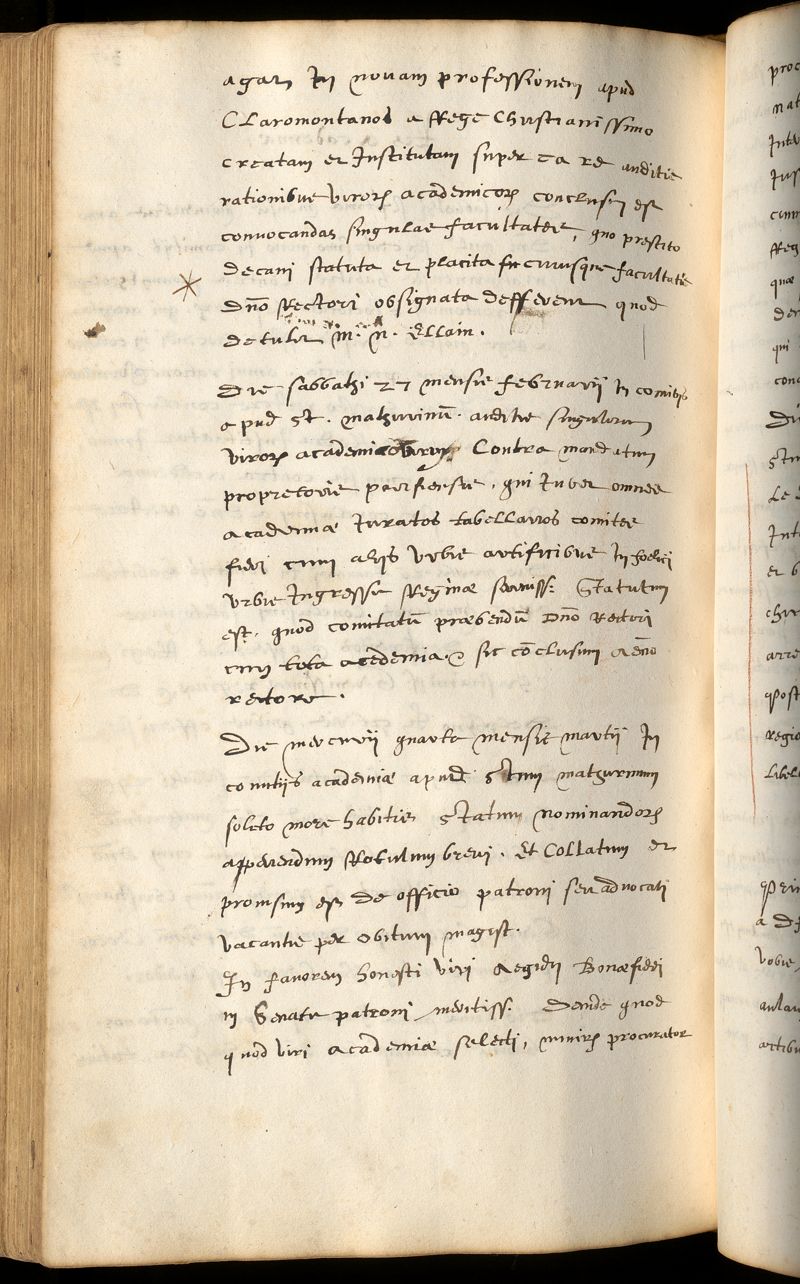 agan In novam professionem apud
Claromontanos a Rege Christianissimo
creatam et Institutam super ea re auditis
rationibus viroꝝ academicoꝝ conclusū est
convocandas singulas facultates, quo prestito
decani statuta et placita cuiusque facultatis
dn̄o Rectori obsignata defferent quod
detulit m. n. Ellain.
Die sabbathi 27 mensis februarii In comitiis
apud st. mathurinū. auditis singulorum
viroꝝ academicorum Contra mandatum
propretoris parisiensis, qui Iubet omnes
academiæ Iuratos tabellarios comites
fieri cum aliis urbis artificibus In foelici
urbis Ingressu Reginæ sereniss: Statutum
est. quod comitatū præbendū Dn̄o Rectori
cum tota academia. sic cōclusum a
rectore.
Die mercurii quarta mensis martii In
comitiis academiæ apud stum mathurinum
solito more habitis statum nominandoꝝ
apperiendum Rotulum brevi. et Collatum et
provisum est de officio patroni seu advocati
vacantis per obitum magist.
In favorem honesti viri Aegidii Bonæfidei
in Senatu patroni meritiss. deinde quod
quod viri academiæ selecti, nimirū procurator
proc
nat
Inte
Jus
cum
Reg
quæ
der
qui
conc
Di
stu
Le
Int
et
chr
arre
post
regio
Libel
Pri
a
vobis
aulam
artibu